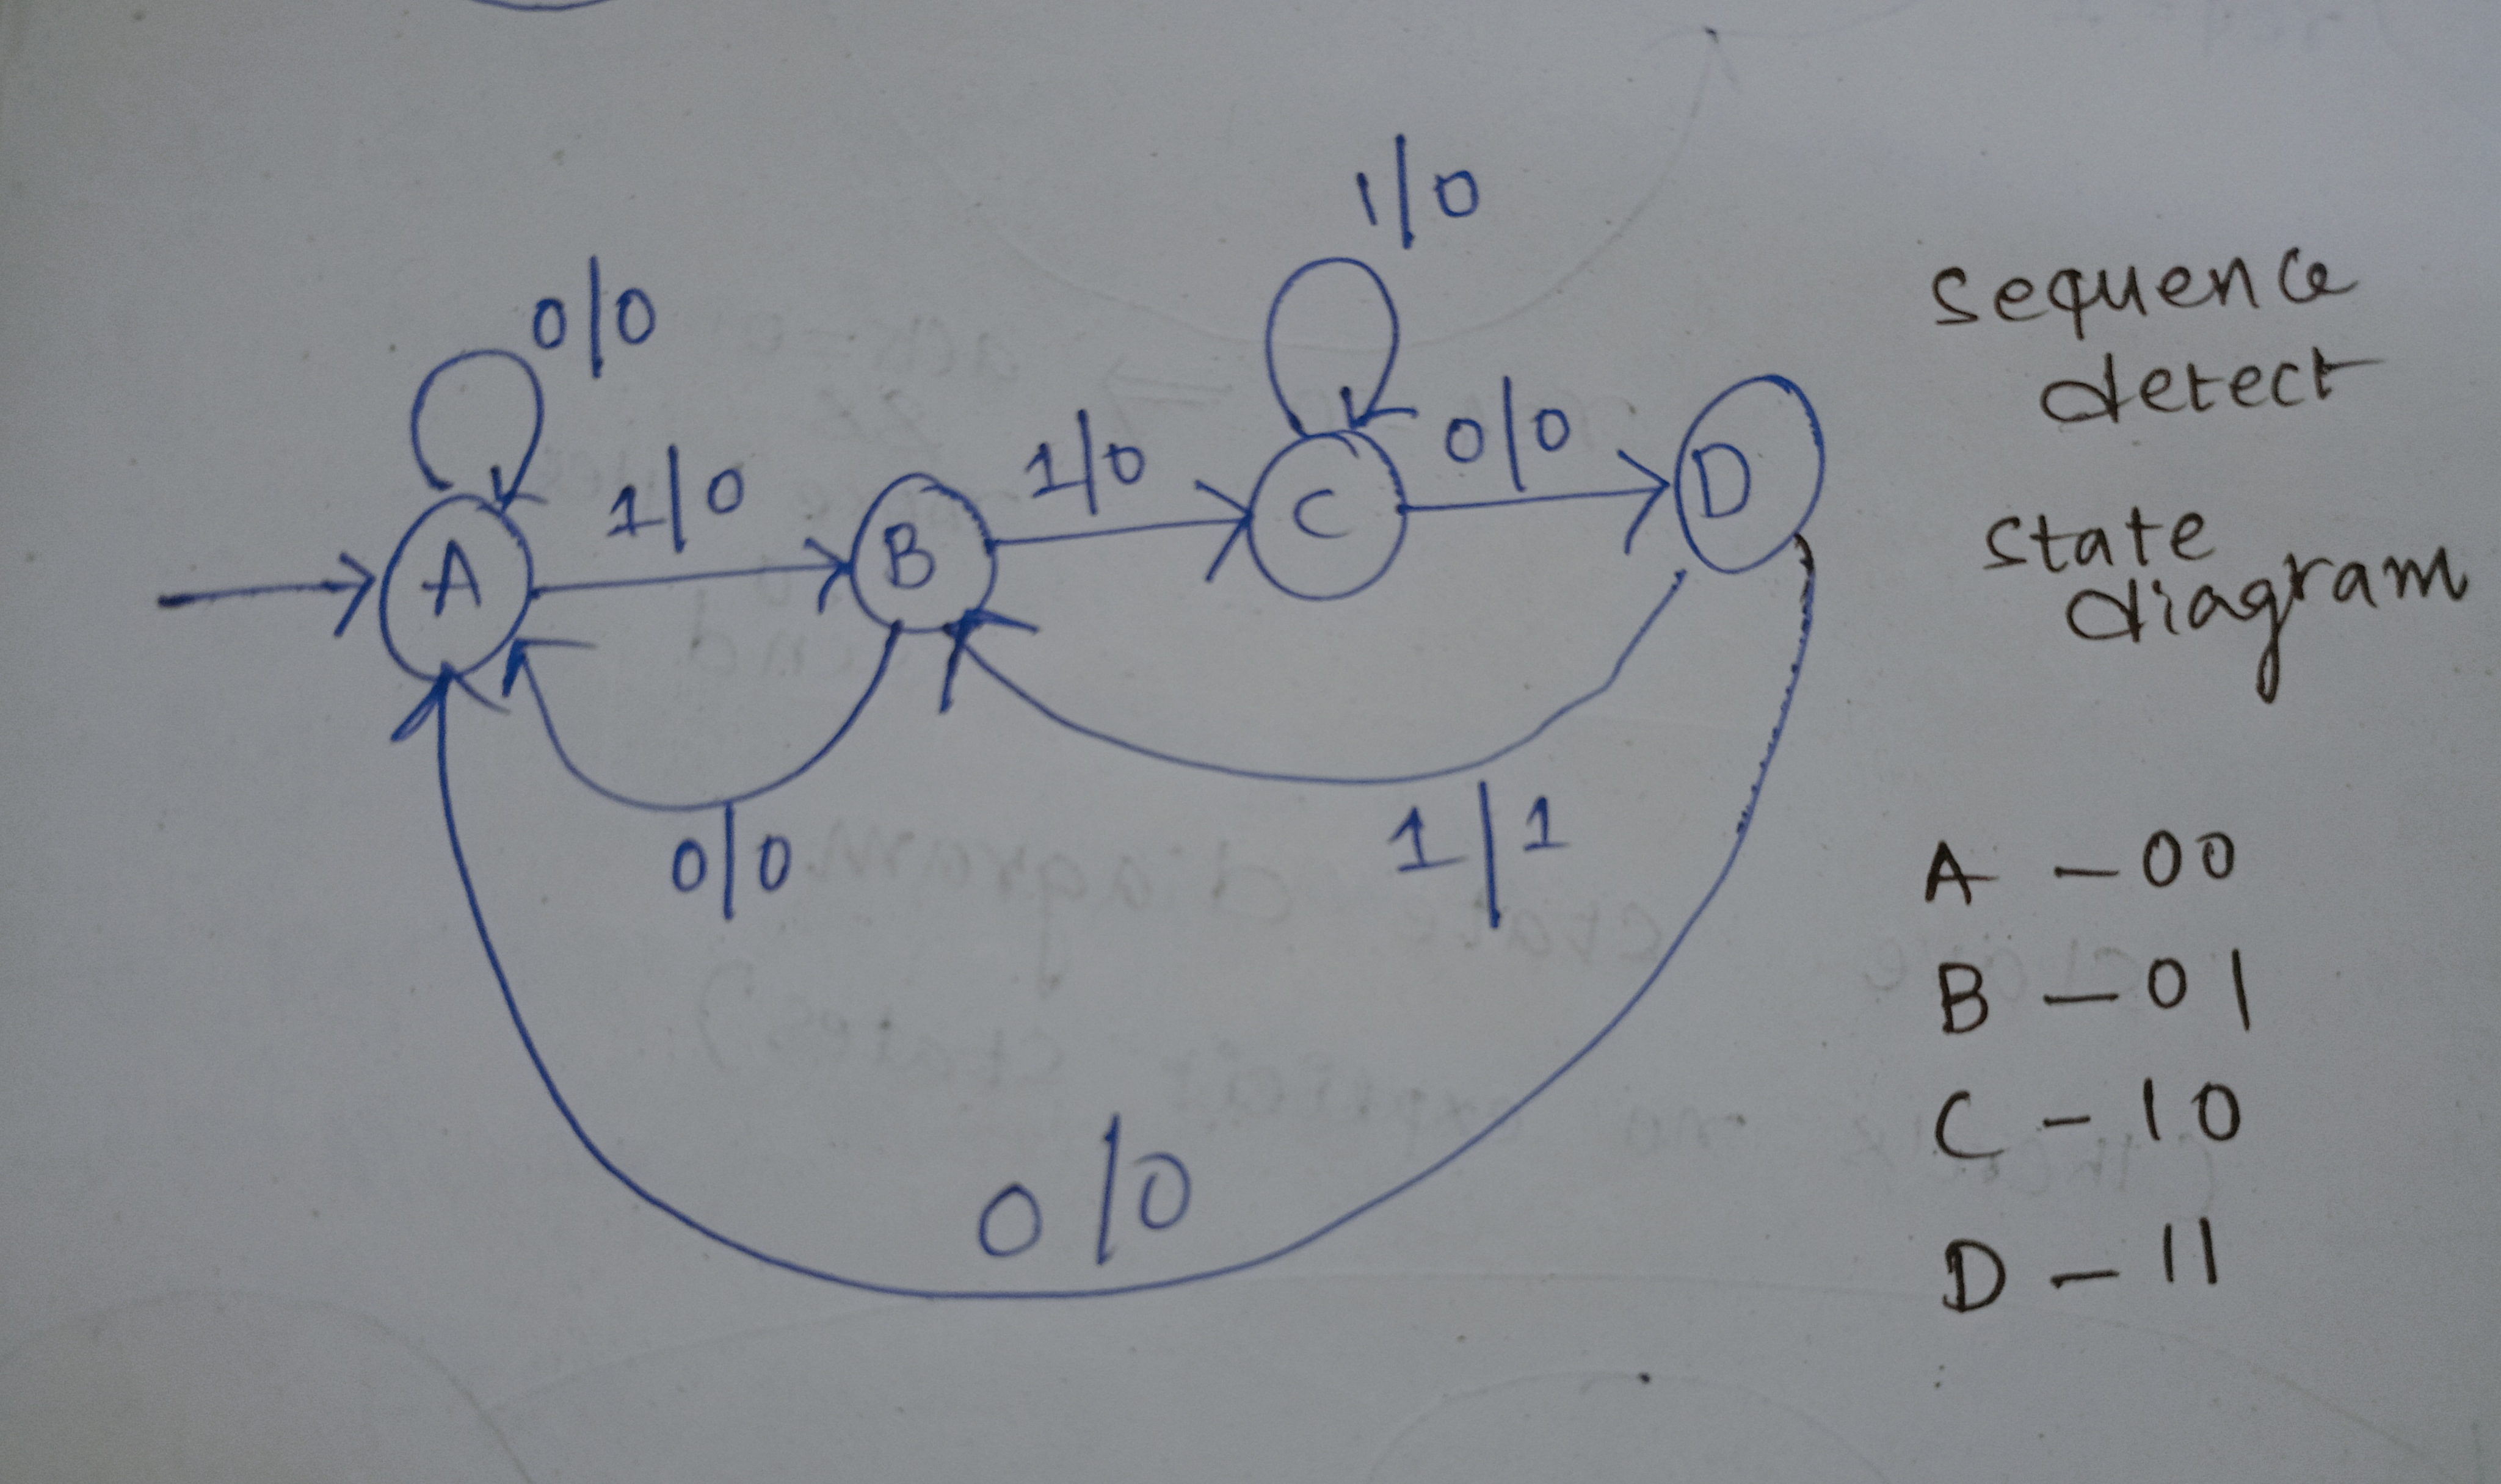 1/0
0/0
1/0
1/0
0/0
A
B
C
D
0/0
1/1
0/0
Sequence
detect
state
diagram
A - 00
B - 01
C - 10
D - 11